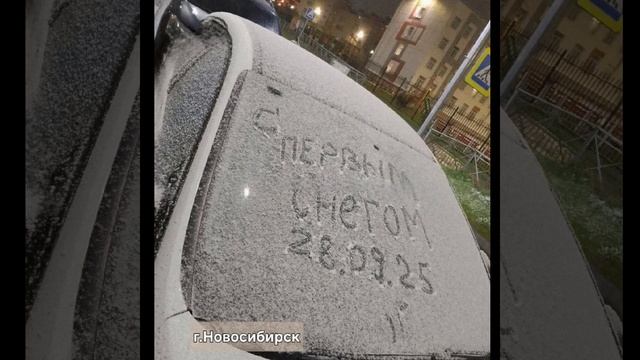 С
ПЕРВЫМ
СНЕГОМ
28.09.25
))
г.Новосибирск